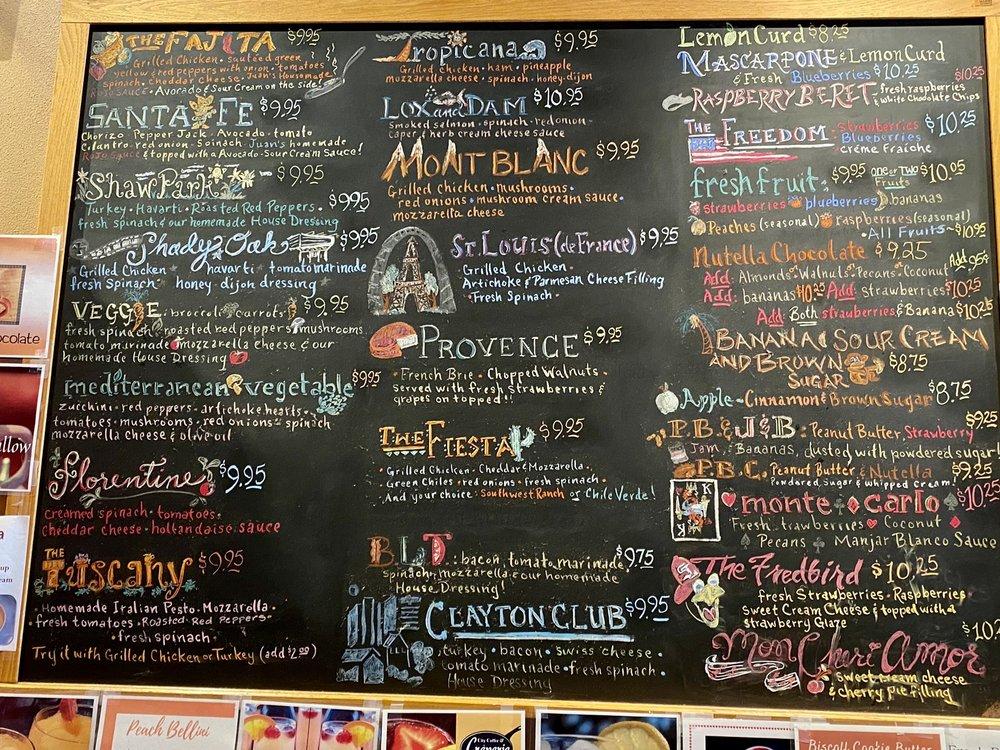 THE FAJITA $9.95
Grilled Chicken · sautéed green
yellow & red peppers with onion · tomatoes
spinach · cheddar cheese · Juan's Housemade
Rojo Sauce · Avocado & Sour Cream on the side!
SANTA FE $9.95
Chorizo · Pepper Jack · Avocado · tomato
Cilantro · red onion · Spinach · Juan's homemade
Rojo Sauce & topped with a Avocado · Sour Cream Sauce!
Shaw Park $9.95
Turkey · Havarti · Roasted Red Peppers · $9.95
fresh spinach & our homemade House Dressing
Shady Oak $9.95
Grilled Chicken havarti tomato marinade
fresh Spinach honey-dijon dressing
VEGGIE : broccoli carrots $9.95
fresh spinach roasted red peppers mushrooms
tomato marinade mozzarella cheese & our
homemade House Dressing
mediterranean vegetable $9.95
zucchini · red peppers · artichoke hearts ·
tomatoes · mushrooms · red onions · spinach
mozzarella cheese & olive oil
Florentine $9.95
creamed spinach · tomatoes ·
cheddar cheese · hollandaise sauce
THE Tuscany $9.95
· Homemade Italian Pesto · Mozzarella ·
· fresh tomatoes · Roasted Red Peppers ·
· fresh spinach ·
Try it with Grilled Chicken or Turkey (add $2.00)
Tropicana $9.95
Grilled chicken · ham · pineapple
mozzarella cheese · spinach · honey-dijon
LOX and DAM $10.95
smoked salmon · spinach · red onion ·
caper & herb cream cheese sauce
MONT BLANC $9.95
Grilled chicken · mushrooms ·
red onions · mushroom cream sauce ·
mozzarella cheese
St. Louis (de France) $9.95
· Grilled Chicken ·
Artichoke & Parmesan Cheese Filling
· Fresh Spinach ·
PROVENCE $9.95
· French Brie · Chopped Walnuts ·
served with fresh strawberries &
grapes on topped!!
THE FIESTA $9.95
· Grilled Chicken · Cheddar & Mozzarella ·
Green Chiles · red onions · fresh spinach ·
And your choice: Southwest Ranch or Chile Verde!
B.L.T. : bacon, tomato marinade, $9.75
spinach, mozzarella & our homemade
House Dressing!
CLAYTON CLUB $9.95
· turkey · bacon · swiss cheese ·
tomato marinade · fresh spinach ·
House Dressing
Lemon Curd $8.25
MASCARPONE & Lemon Curd
& Fresh Blueberries $10.25
RASPBERRY BERET fresh raspberries $10.25
& White Chocolate Chips
THE FREEDOM : strawberries $10.25
Blueberries
créme fraîche
fresh fruit : $9.95 one or two Fruits $10.95
strawberries blueberries bananas
Peaches (seasonal) raspberries (seasonal)
· All Fruits ~ $10.95
Nutella Chocolate $9.25
Add: Almonds · Walnuts · Pecans · Coconut Add 95¢
Add: bananas $10.25 Add: strawberries $10.25
Add: Both strawberries & Banana $10.25
BANANA & SOUR CREAM
AND BROWN SUGAR $8.75
Apple - Cinnamon & Brown Sugar $8.75
P.B. & J. & B : Peanut Butter, Strawberry $9.25
Jam, Bananas, dusted with powdered sugar!
P.B.C. Peanut Butter & Nutella $9.25
Powdered Sugar & whipped cream!
K
monte carlo $10.25
Fresh strawberries Coconut
Pecans Manjar Blanco Sauce
The Fredbird $10.25
fresh Strawberries · Raspberries ·
sweet Cream Cheese & topped with a
strawberry Glaze
Mon Cheri Amor
· sweet cream cheese
& cherry pie filling
Peach Bellini
City Coffee &
Crêperie
Biscoff Cookie Butter